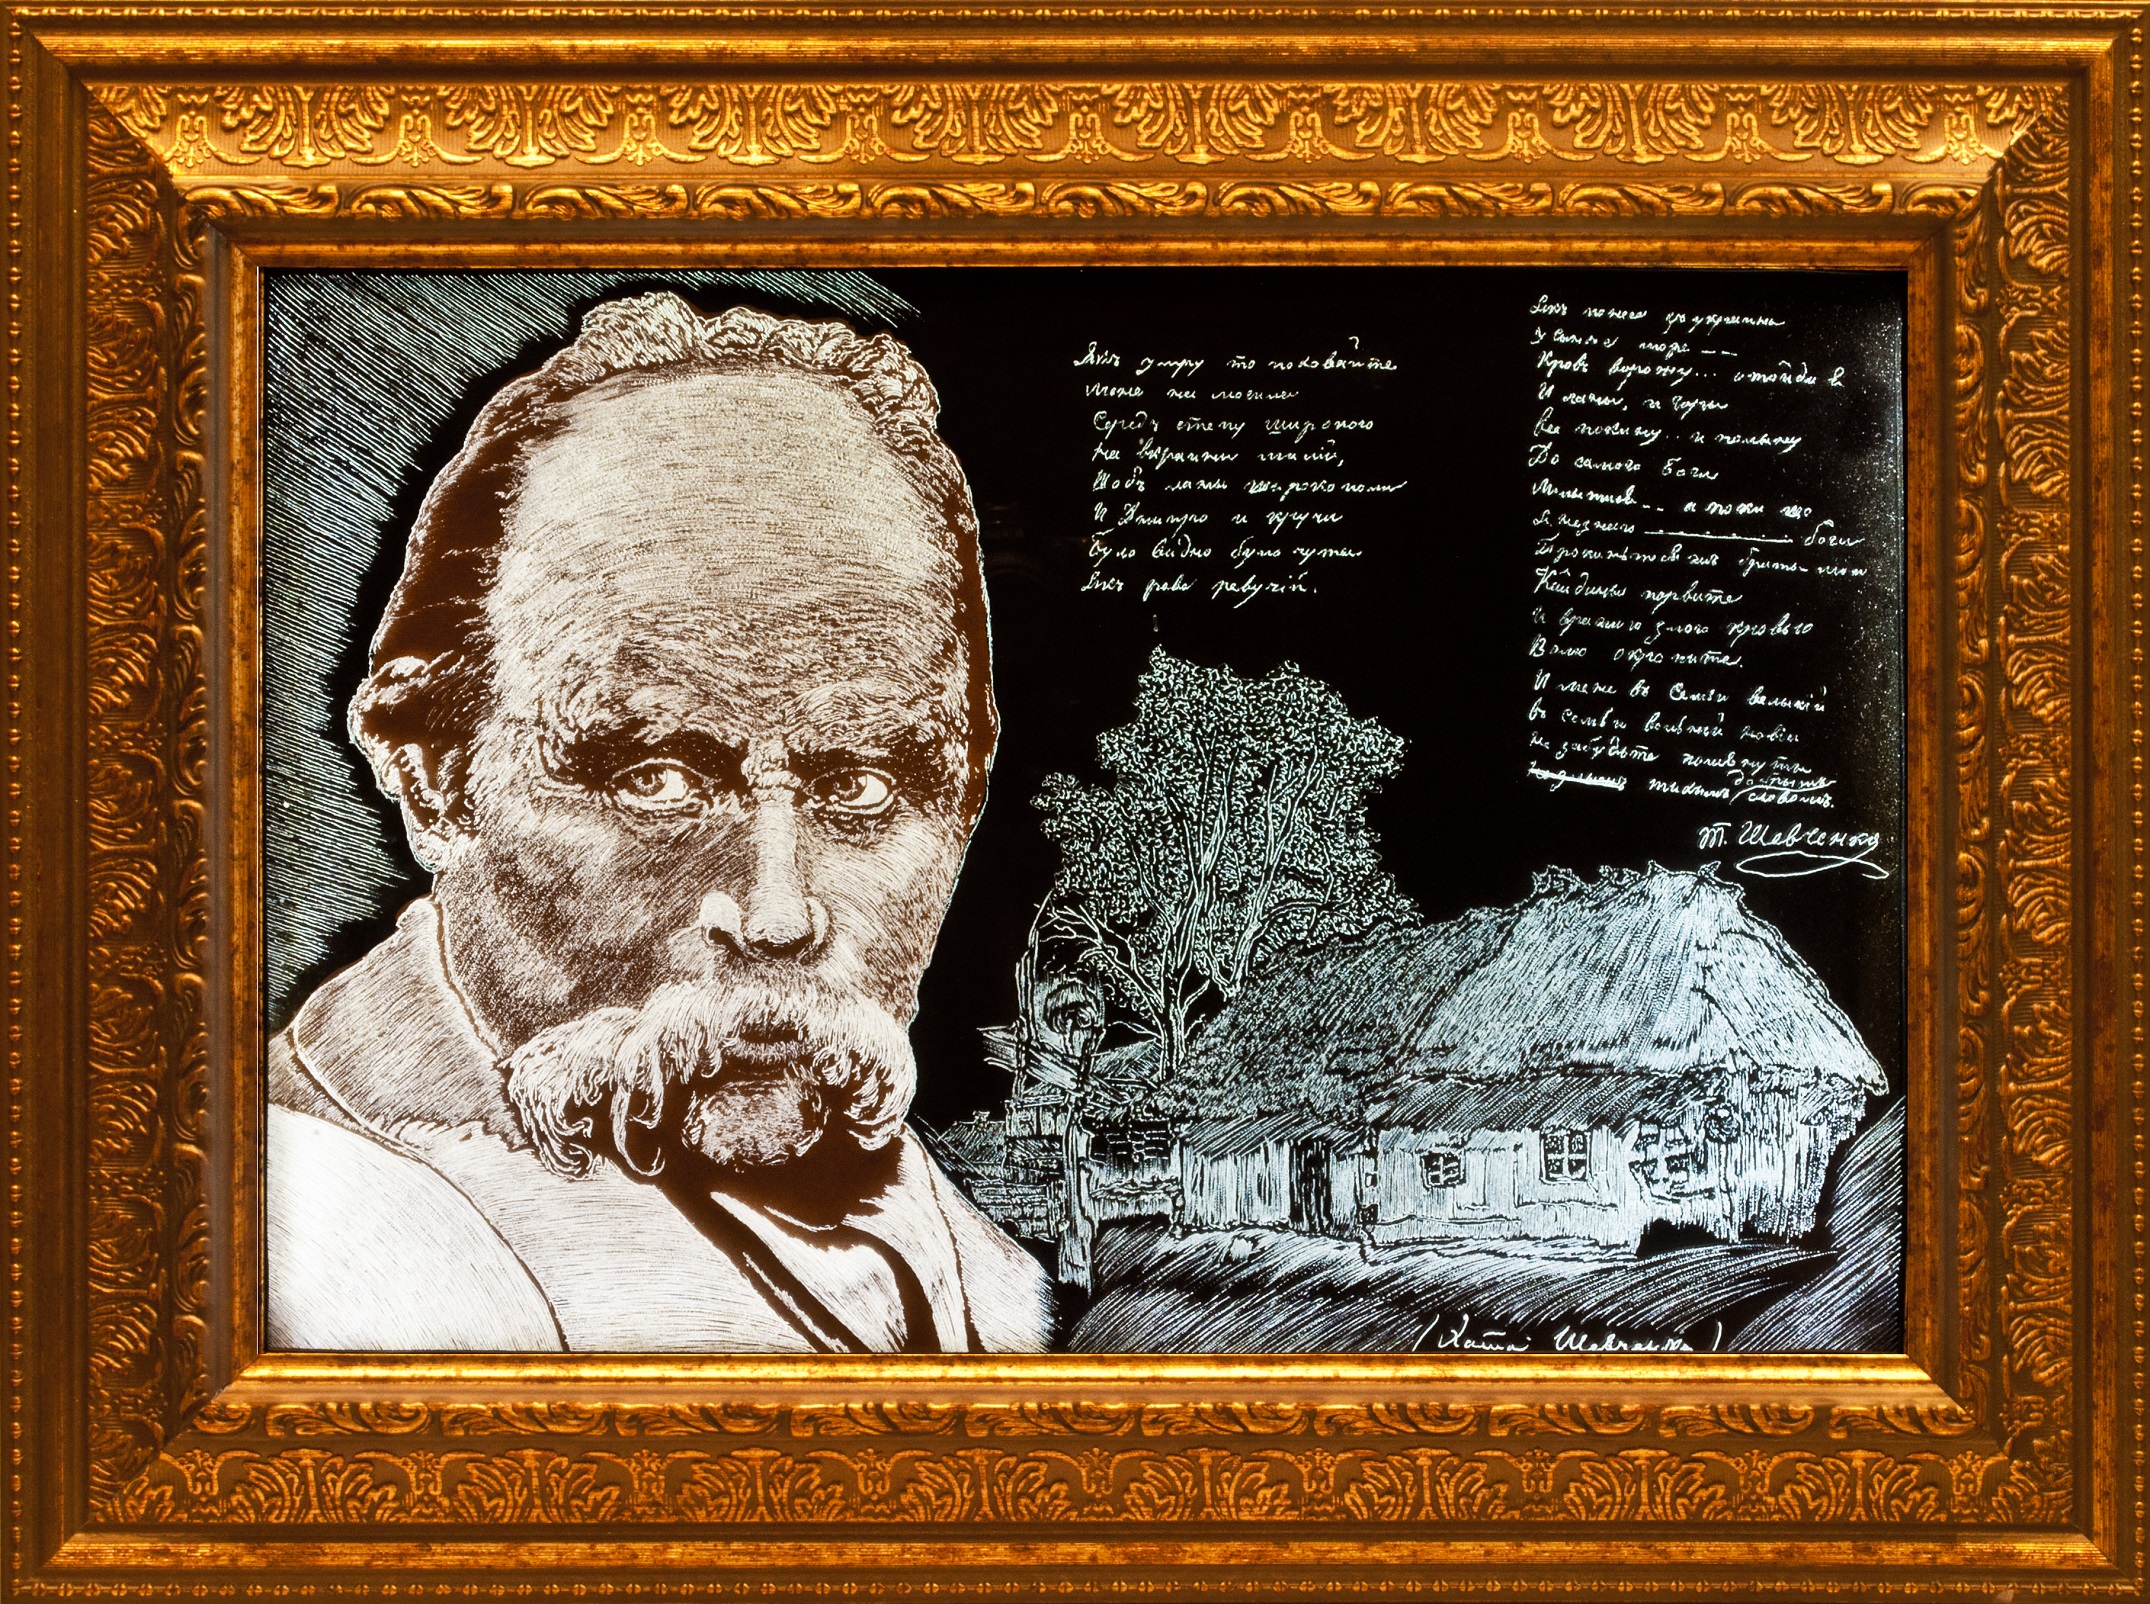 Якъ умру то поховайте
Мене на могили
Середъ степу широкого
На вкраини милій,
Щобъ ланы широкополи
И Днипро и кручи
Було видно було чуты
Якъ реве ревучій.
Якъ понесе зъ украины
У синєє море - -
Кровъ ворожу... отойди я
И ланы, и горы
Все покину.. и полыну
До самого бога
Молыться.. а поки що
Я не знаю бога
Поховайте та
Кайданы порвите
И вражою злою кровъю
Волю окропите.
И мене въ семъи великій
Въ семъи вольній новій
Не забудьте помянуты
тихымъ добрымъ
словомъ.
Т. Шевченко
(Хата Шевченка)